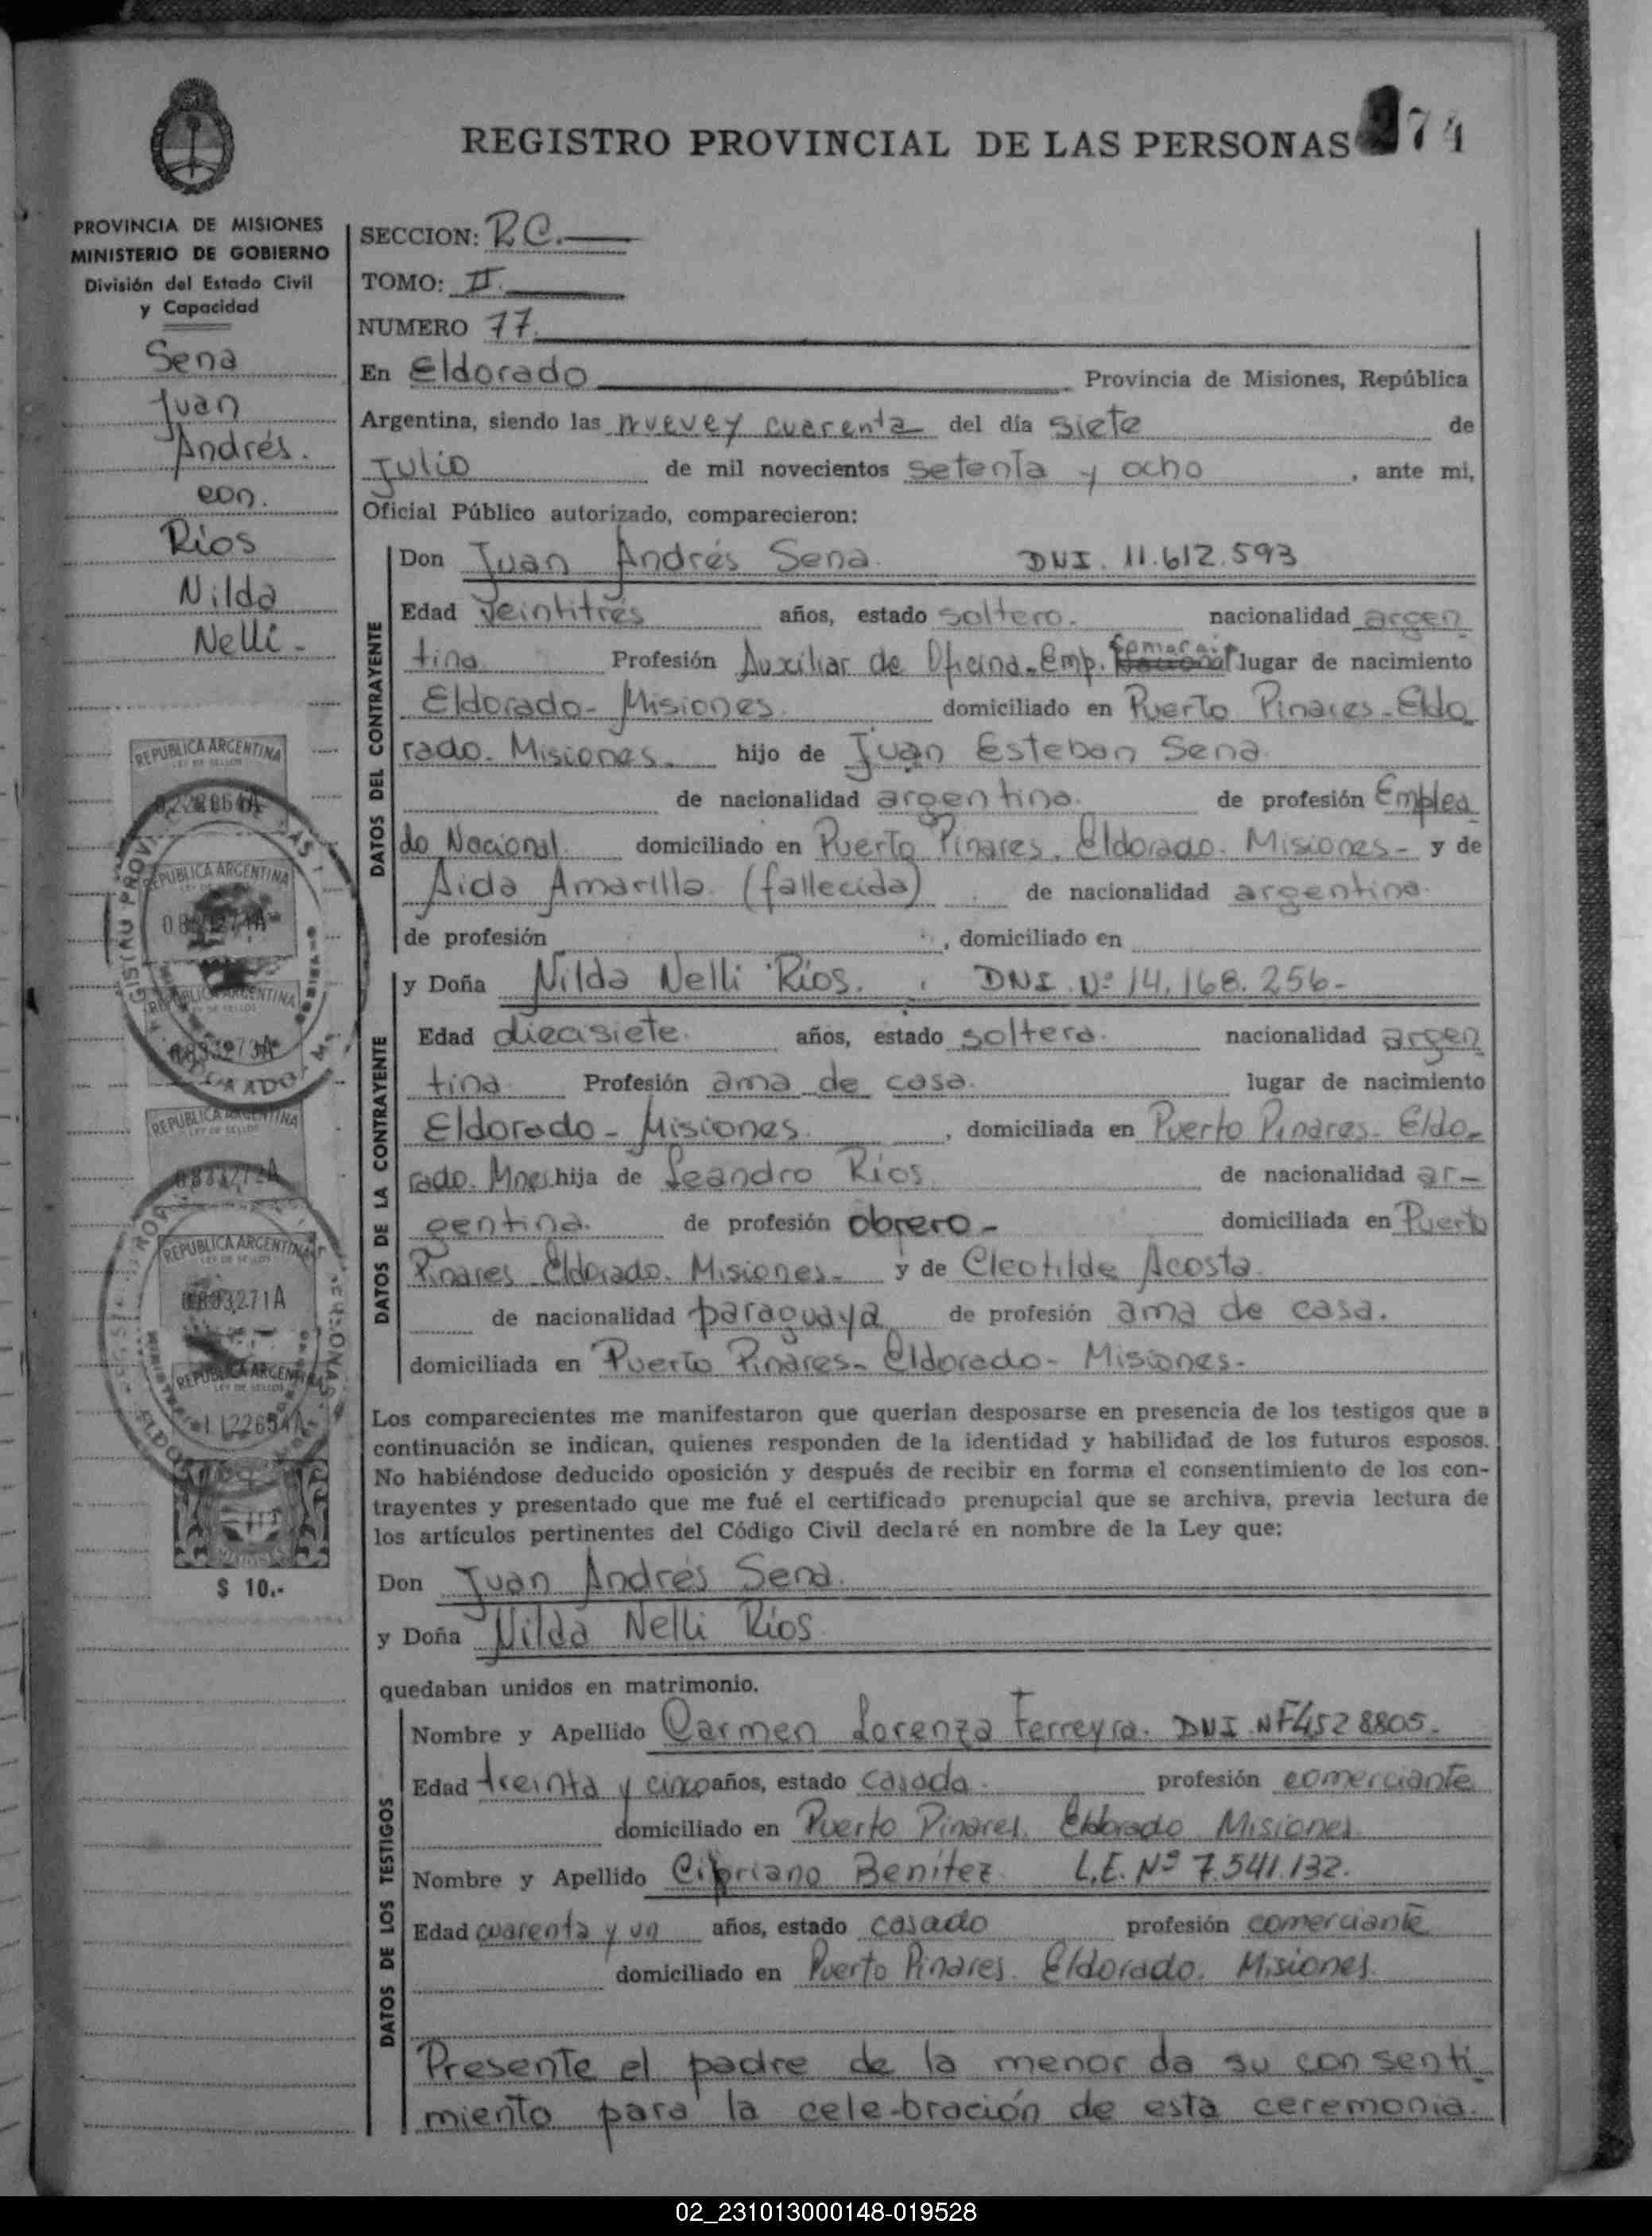 REGISTRO PROVINCIAL DE LAS PERSONAS 274
PROVINCIA DE MISIONES
MINISTERIO DE GOBIERNO
División del Estado Civil
y Capacidad
Sena
Juan
Andrés.
con.
Ríos
Nilda
Nelli-
REPUBLICA ARGENTINA
LEY DE SELLOS
REPUBLICA ARGENTINA
REPUBLICA ARGENTINA
LEY DE SELLOS
REPUBLICA ARGENTINA
LEY DE SELLOS
0883272A
REPUBLICA ARGENTINA
LEY DE SELLOS
0883271A
REPUBLICA ARGENTINA
LEY DE SELLOS
$ 10.-
SECCION: R.C.
TOMO: II.
NUMERO 77.
En Eldorado Provincia de Misiones, República
Argentina, siendo las nueve y cuarenta del día siete de
Julio de mil novecientos setenta y ocho , ante mi,
Oficial Público autorizado, comparecieron:
DATOS DEL CONTRAYENTE
Don Juan Andrés Sena. DNI. 11.612.593
Edad Veintitrés años, estado soltero. nacionalidad argen
tina Profesión Auxiliar de Oficina-Emp. lugar de nacimiento
Eldorado- Misiones. domiciliado en Puerto Pinares-Eldo
rado. Misiones. hijo de Juan Esteban Sena.
de nacionalidad argentina. de profesión Emplea
do Nacional. domiciliado en Puerto Pinares. Eldorado. Misiones- y de
Aida Amarilla. (fallecida) de nacionalidad argentina.
de profesión , domiciliado en
DATOS DE LA CONTRAYENTE
y Doña Nilda Nelli Ríos. DNI. Nº 14.168.256-
Edad diecisiete. años, estado soltera. nacionalidad argen
tina Profesión ama de casa. lugar de nacimiento
Eldorado - Misiones. , domiciliada en Puerto Pinares- Eldo-
rado. Mnes. hija de Leandro Ríos. de nacionalidad ar-
gentina. de profesión obrero- domiciliada en Puerto
Pinares Eldorado. Misiones- y de Cleotilde Acosta.
de nacionalidad paraguaya de profesión ama de casa.
domiciliada en Puerto Pinares- Eldorado- Misiones-
Los comparecientes me manifestaron que querían desposarse en presencia de los testigos que a
continuación se indican, quienes responden de la identidad y habilidad de los futuros esposos.
No habiéndose deducido oposición y después de recibir en forma el consentimiento de los con-
trayentes y presentado que me fué el certificado prenupcial que se archiva, previa lectura de
los artículos pertinentes del Código Civil declaré en nombre de la Ley que:
Don Juan Andrés Sena.
y Doña Nilda Nelli Ríos.
quedaban unidos en matrimonio.
DATOS DE LOS TESTIGOS
Nombre y Apellido Carmen Lorenza Ferreyra. DNI. Nº 4528805.
Edad treinta y cinco años, estado casada. profesión comerciante
domiciliado en Puerto Pinares. Eldorado Misiones
Nombre y Apellido Cipriano Benítez L.E. Nº 7.541.132.
Edad cuarenta y un años, estado casado profesión comerciante
domiciliado en Puerto Pinares. Eldorado. Misiones.
Presente el padre de la menor da su consenti
miento para la cele-bración de esta ceremonia.
02_231013000148-019528